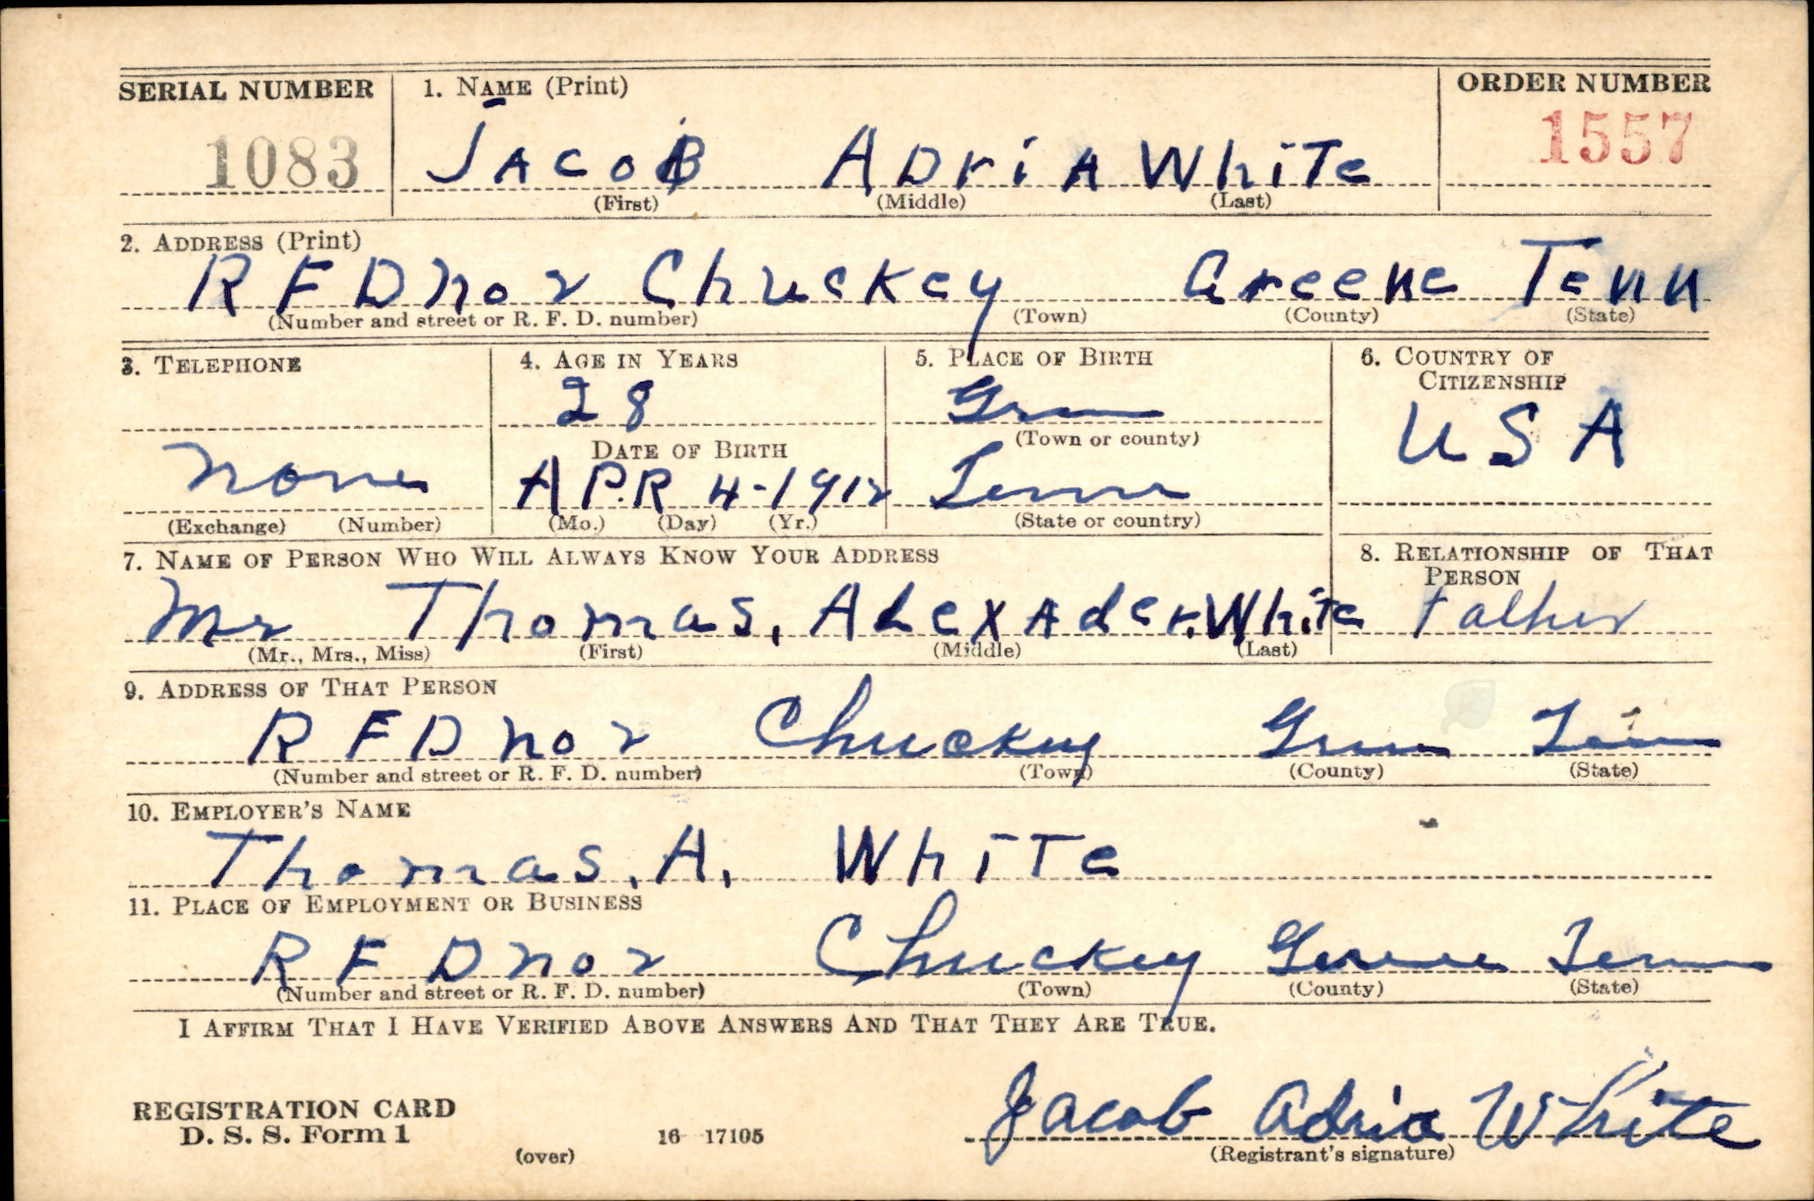 SERIAL NUMBER 1. NAME (Print) ORDER NUMBER
1083 JACOB ADriA WhiTe 1557
(First) (Middle) (Last)
2. ADDRESS (Print)
R F D no 2 Chuckey Greene Tenn
(Number and street or R. F. D. number) (Town) (County) (State)
3. TELEPHONE 4. AGE IN YEARS 5. PLACE OF BIRTH 6. COUNTRY OF
CITIZENSHIP
28 Green USA
DATE OF BIRTH (Town or county)
none APR 4-1912 Tenn
(Exchange) (Number) (Mo.) (Day) (Yr.) (State or country)
7. NAME OF PERSON WHO WILL ALWAYS KNOW YOUR ADDRESS 8. RELATIONSHIP OF THAT
PERSON
Mr Thomas, ALexAder. White Father
(Mr., Mrs., Miss) (First) (Middle) (Last)
9. ADDRESS OF THAT PERSON
R F D no 2 Chuckey Green Tenn
(Number and street or R. F. D. number) (Town) (County) (State)
10. EMPLOYER'S NAME
Thomas. A. WhiTe
11. PLACE OF EMPLOYMENT OR BUSINESS
R F D no 2 Chuckey Greene Tenn
(Number and street or R. F. D. number) (Town) (County) (State)
I AFFIRM THAT I HAVE VERIFIED ABOVE ANSWERS AND THAT THEY ARE TRUE.
REGISTRATION CARD
D. S. S. Form 1 16-17105 Jacob Adria White
(over) (Registrant's signature)